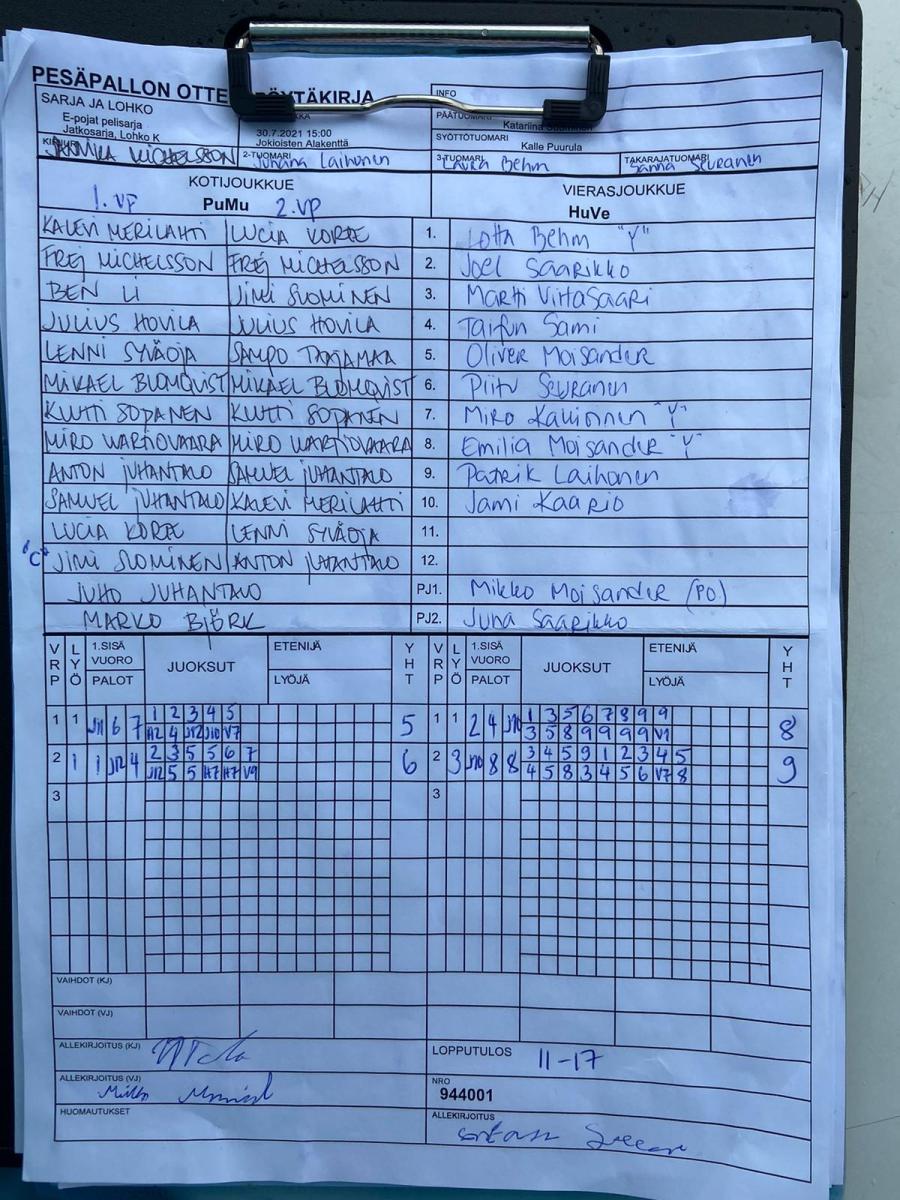 PESÄPALLON OTTE ÖYTÄKIRJA
SARJA JA LOHKO
E-pojat pelisarja
Jatkosarja, Lohko K
30.7.2021 15:00
Jokioisten Alakenttä
INFO
PÄÄTUOMARI
Katariina Suominen
SYÖTTÖTUOMARI
Kalle Puurula
JANNIKA MICHELSSON
2-TUOMARI Juhana Laihonen
3-TUOMARI Laura Behm
TAKARAJATUOMARI Sanna Seuranen
KOTIJOUKKUE
VIERASJOUKKUE
1. VP PuMu 2. VP
HuVe
KALEVI MERILAHTI LUCIA KORTE 1. Lotta Behm "Y"
FREJ MICHELSSON FREJ MICHELSSON 2. Joel Saarikko
BEN LI JIMI SUOMINEN 3. Martti Virtasaari
JULIUS HOVILA JULIUS HOVILA 4. Taifun Sami
LENNI SYVÄOJA SAMPO TAAJAMAA 5. Oliver Moisander
MIKAEL BLOMQVIST MIKAEL BLOMQVIST 6. Piitu Seuranen
KUUTTI SOPANEN KUUTTI SOPANEN 7. Miro Kallionen "Y"
MIRO WARTIOVAARA MIRO WARTIOVAARA 8. Emilia Moisander "Y"
ANTON JUHANTALO SAMUEL JUHANTALO 9. Patrik Laihonen
SAMUEL JUHANTALO KALEVI MERILAHTI 10. Jami Kaario
LUCIA KORTE LENNI SYVÄOJA 11.
"C" JIMI SUOMINEN ANTON JUHANTALO 12.
JUHO JUHANTALO PJ1. Mikko Moisander (PO)
MARKO BJÖRK PJ2. Juha Saarikko
VRP LYÖ 1.SISÄ VUORO PALOT JUOKSUT ETENIJÄ LYÖJÄ YHT VRP LYÖ 1.SISÄ VUORO PALOT JUOKSUT ETENIJÄ LYÖJÄ YHT
1 1 J11 6 7 1 2 3 4 5 5 1 1 2 4 J10 1 3 5 6 7 8 9 9 8
H2 4 J12 J10 V7 3 5 8 9 9 9 9 V1
2 1 1 J12 4 2 3 5 5 6 7 6 2 3 J10 8 8 3 4 5 9 1 2 3 4 5 9
J12 5 5 H7 H7 V9 4 5 8 3 4 5 6 V7 8
3 3
VAIHDOT (KJ)
VAIHDOT (VJ)
ALLEKIRJOITUS (KJ)
LOPPUTULOS 11-17
ALLEKIRJOITUS (VJ)
NRO
944001
HUOMAUTUKSET
ALLEKIRJOITUS